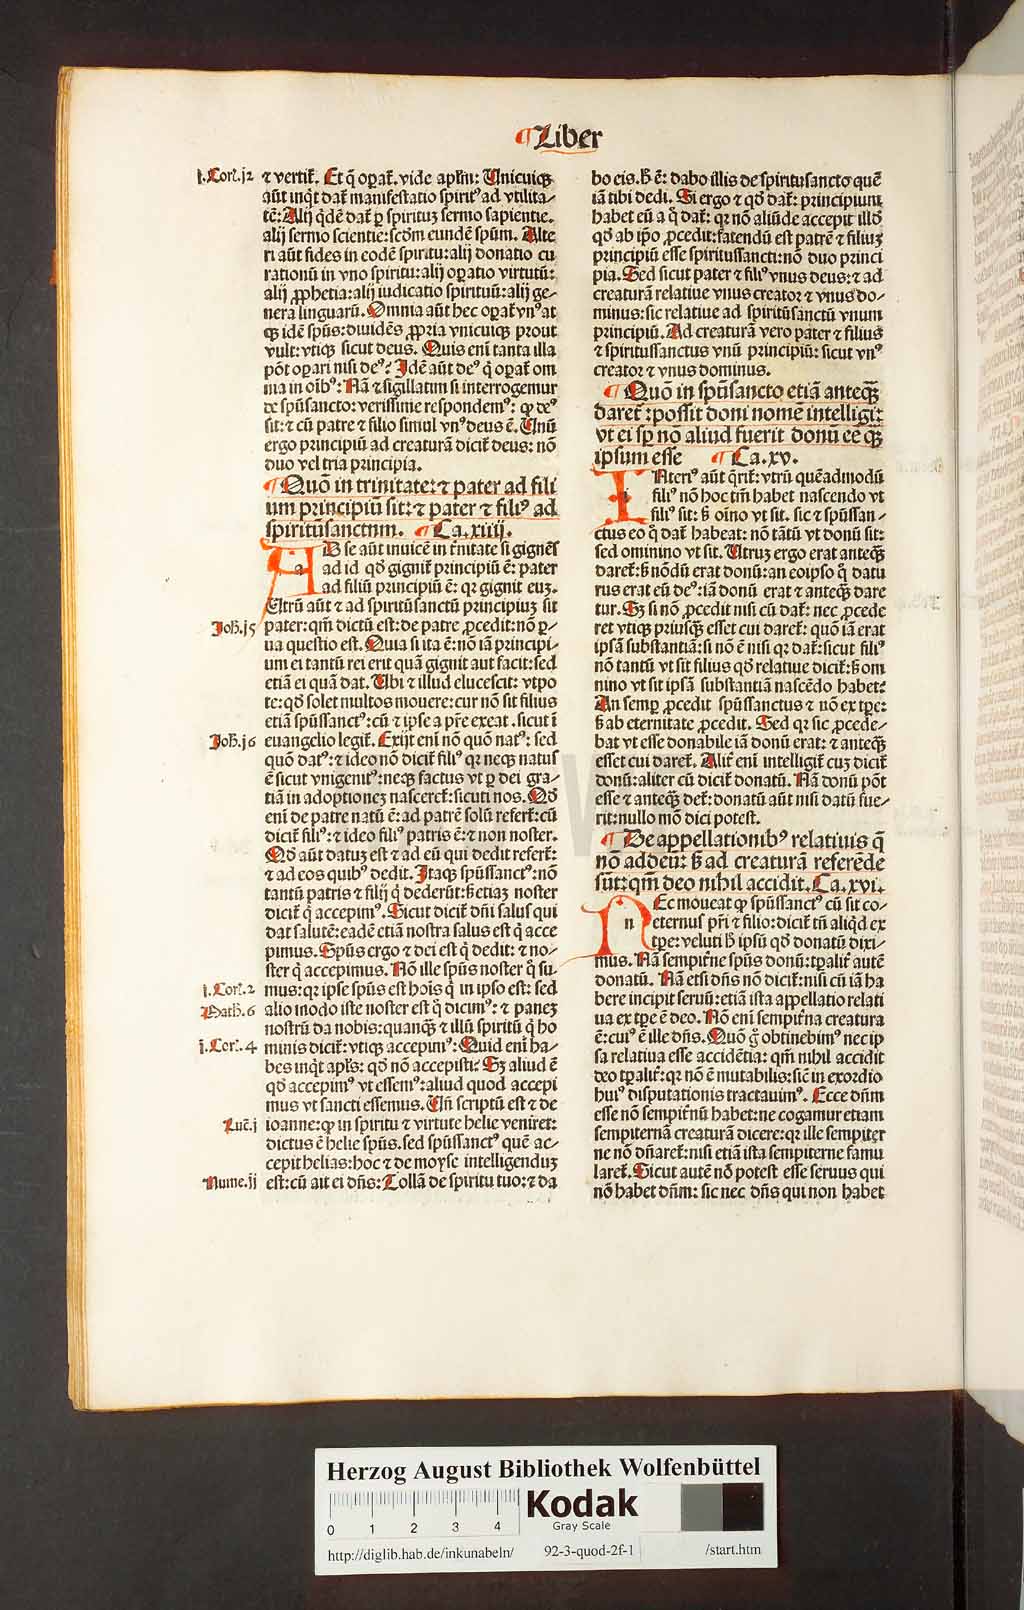 ¶ Liber
j.Corī.j2
⁊ vertiť. Et q̄ oꝑať. vide apl̄m: Unicuiqꝫ
aūt inq̇t dať manifestatio spiritꝰ ad vtilita⸗
tē: Alij q̇dē dať ꝑ spirituꝫ sermo sapientie.
alij sermo scientie: scd̄m eundē spūm. Alte
ri aūt fides in eodē spiritu: alij donatio cu
rationū in vno spiritu: alij oꝑatio virtutū:
alij ꝓphetia: alij iudicatio spirituū: alij ge⸗
nera linguarū. Omnia aūt hec oꝑať vnꝰ at
qꝫ idē spūs: diuidēs ꝓpria vnicuiqꝫ prout
vult: vtiqꝫ sicut deus. Quis eni tanta illa
pōt oꝑari nisi deꝰ? Idē aūt deꝰ q̇ oꝑať om
nia in oībꝰ: Nā ⁊ sigillatim si interrogemur
de spūsancto: verissime respondemꝰ: ꝙ deꝰ
sit: ⁊ cū patre ⁊ filio simul vnꝰ deus ē. Unū
ergo principiū ad creaturā diciť deus: nō
duo vel tria principia.
¶ Quō in trinitate: ⁊ pater ad fili
um principiū sit: ⁊ pater ⁊ filiꝰ ad
spiritūsanctum. ¶ Ca.xiiij.
AD se aūt inuicē in tr̄nitate si gignēs
a
ad id qd̄ gigniť principiū ē: pater
ad filiū principiū ē: qꝛ gignit euꝫ.
Utrū aūt ⁊ ad spiritūsanctū principiuꝫ sit
Joh̄.j5
pater: qm̄ dictū est: de patre ꝓcedit: nō ꝑ⸗
ua questio est. Quia si ita ē: nō iā principi⸗
um ei tantū rei erit quā gignit aut facit: sed
etiā ei quā dat. Ubi ⁊ illud elucescit: vtpo
te: qd̄ solet multos mouere: cur nō sit filius
etiā spūssanctꝰ: cū ⁊ ipse a pr̄e exeat .sicut ī
Joh̄.j6
euangelio legiť. Exijt eni nō quō natꝰ: sed
quō datꝰ: ⁊ ideo nō diciť filiꝰ qꝛ neqꝫ natus
ē sicut vnigenitꝰ: neqꝫ factus vt ꝑ dei gra⸗
tiā in adoptioneꝫ nascereť: sicuti nos. Qd̄
eni de patre natū ē: ad patrē solū referť: cū
diciť filiꝰ: ⁊ ideo filiꝰ patris ē: ⁊ non noster.
Qd̄ aūt datuꝫ est ⁊ ad eū qui dedit referť:
⁊ ad eos quibꝰ dedit. Itaqꝫ spūssanctꝰ: nō
tantū patris ⁊ filij q̇ dederūt: ẜ etiaꝫ noster
diciť q̇ accepimꝰ. Sicut diciť dn̄i salus qui
dat salutē: eadē etiā nostra salus est q̇ acce
pimus. Spūs ergo ⁊ dei est q̇ dedit: ⁊ no⸗
ster q̇ accepimus. Nō ille spūs noster q̇ su⸗
j.Corī.2
mus: qꝛ ipse spūs est hoīs q̇ in ipso est: sed
Math̄.6
alio modo iste noster est q̇ dicimꝰ: ⁊ paneꝫ
nostrū da nobis: quanqꝫ̄ ⁊ illū spiritū q̇ ho
j.Corī.4
minis diciť: vtiqꝫ accepimꝰ: Quid eni ha⸗
bes inq̇t apl̄s: qd̄ nō accepisti? Sꝫ aliud ē
qd̄ accepimꝰ vt essemꝰ: aliud quod accepi
mus vt sancti essemus. Un̄ scriptū est ⁊ de
Luč.j
ioanne: ꝙ in spiritu ⁊ virtute helie veniret:
dictus ē helie spūs. sed spūssanctꝰ quē ac⸗
cepit helias: hoc ⁊ de moyse intelligenduꝫ
Nume.jj
est: cū ait ei dn̄s: Tollā de spiritu tuo: ⁊ da
bo eis. h̄ ē: dabo illis de spiritusancto quē
iā tibi dedi. Si ergo ⁊ qd̄ dať: principium
habet eū a q̇ dať: qꝛ nō aliūde accepit illd̄
qd̄ ab ip̄o ꝓcedit: fatendū est patrē ⁊ filiuꝫ
principiū esse spiritussancti: nō duo princi
pia. Sed sicut pater ⁊ filiꝰ vnus deus: ⁊ ad
creaturā relatiue vnus creator ⁊ vnus do⸗
minus: sic relatiue ad spiritūsanctū vnum
principiū. Ad creaturā vero pater ⁊ filius
⁊ spiritussanctus vnū principiū: sicut vnꝰ
creator ⁊ vnus dominus.
¶ Quō in spūsancto etiā anteqꝫ̄
dareť: possit doni nomē intelligi:
vt ei sp̄ nō aliud fuerit donū eē qꝫ̄
ipsum esse ¶ Ca.xv.
INteriꝰ aūt q̄riť: vtrū quēadmodū
i
filiꝰ nō hoc tm̄ habet nascendo vt
filiꝰ sit: ẜ oīno vt sit. sic ⁊ spūssan⸗
ctus eo q̇ dať habeat: nō tātū vt donū sit:
sed ominino vt sit. Utruꝫ ergo erat anteqꝫ̄
dareť: ẜ nōdū erat donū: an eoipso q̇ datu
rus erat eū deꝰ: iā donū erat ⁊ anteqꝫ̄ dare
tur. Sꝫ si nō ꝓcedit nisi cū dať: nec ꝓcede
ret vtiqꝫ priusqꝫ̄ esset cui dareť: quō iā erat
ipsā substantiā: si nō ē nisi qꝛ dať: sicut filiꝰ
nō tantū vt sit filius qd̄ relatiue diciť: ẜ om
nino vt sit ipsā substantiā nascēdo habet:
An semꝑ ꝓcedit spūssanctus ⁊ nō ex tꝑe:
ẜ ab eternitate ꝓcedit. Sed qꝛ sic ꝓcede⸗
bat vt esse donabile iā donū erat: ⁊ anteqꝫ̄
esset cui dareť. Aliť eni intelligiť cuꝫ diciť
donū: aliter cū diciť donatū. Nā donū pōt
esse ⁊ anteqꝫ̄ deť: donatū aūt nisi datū fue⸗
rit: nullo mō dici potest.
¶ De appellationibꝰ relatiuis q̄
nō ad deū: ẜ ad creaturā referēde
sūt: qm̄ deo nihil accidit. Ca.xvi.
NEc moueat ꝙ spūssanctꝰ cū sit co⸗
n
eternus pr̄i ⁊ filio: diciť tn̄ aliq̇d ex
tꝑe: veluti h̄ ipsū qd̄ donatū dixi⸗
mus. Nā sempiťne spūs donū: tꝑaliť autē
donatū. Nā etsi dn̄s nō diciť: nisi cū iā ha
bere incipit seruū: etiā ista appellatio relati
ua ex tꝑe ē deo. Nō eni sempiťna creatura
ē: cuiꝰ ē ille dn̄s. Quō g̊ obtinebimꝰ nec ip
sa relatiua esse accidētia: qm̄ nihil accidit
deo tꝑaliť: qꝛ nō ē mutabilis: sicut in exordio
huiꝰ disputationis tractauimꝰ. Ecce dn̄m
esse nō sempiťnū habet: ne cogamur etiam
sempiternā creaturā dicere: qꝛ ille sempiter
ne nō dn̄areť: nisi etiā ista sempiterne famu
lareť. Sicut autē nō potest esse seruus qui
nō habet dn̄m: sic nec dn̄s qui non habet
Herzog August Bibliothek Wolfenbüttel
0 1 2 3 4
Kodak
Gray Scale
http://diglib.hab.de/inkunabeln/ 92-3-quod-2f-1 /start.htm